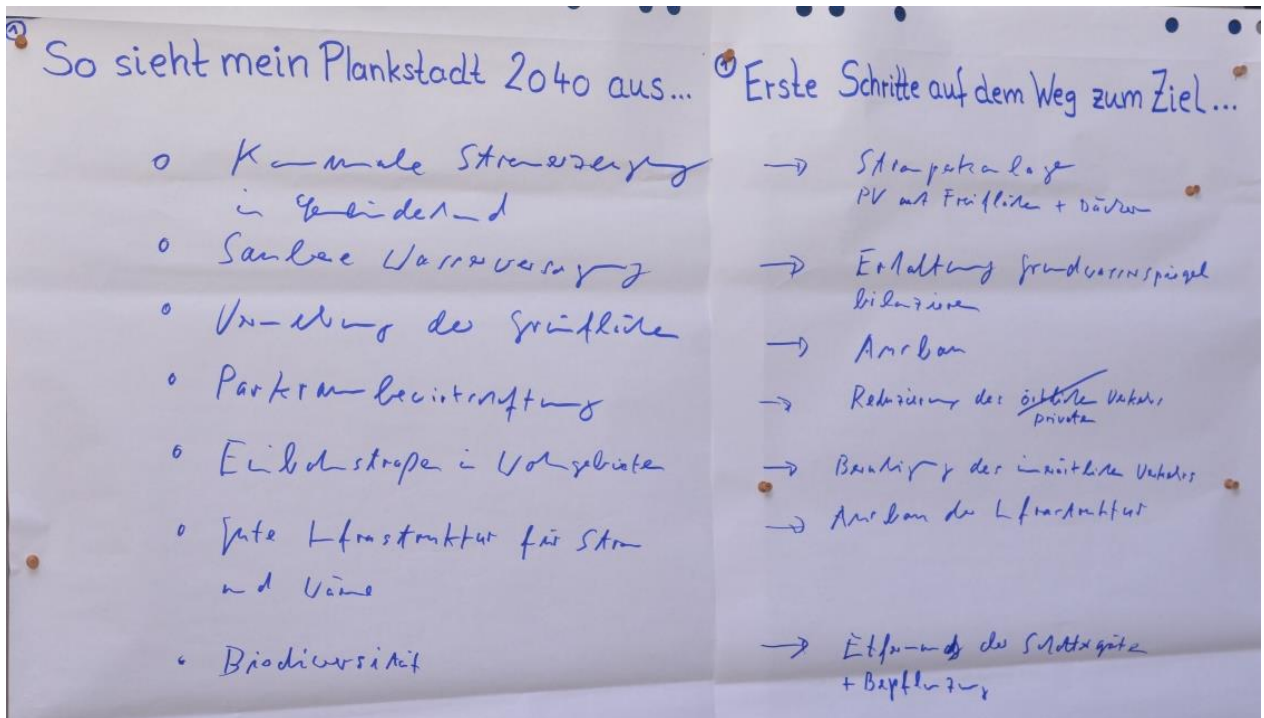 ① So sieht mein Plankstadt 2040 aus...
o Kommunale Stromerzeugung
in Gemeindehand
o Saubere Wasserversorgung
o Vernetzung der Grünflächen
o Parkraumbewirtschaftung
o Einbahnstraßen in Wohngebieten
o gute Infrastruktur für Strom
und Wärme
• Biodiversität
① Erste Schritte auf dem Weg zum Ziel...
→
PV auf Freiflächen + Dächern
→ Erhaltung Grundwasserspiegel
bilanzieren
→ Ausbau
→ Reduzierung des örtlichen Verkehrs
privaten
→ Beruhigung des innerörtlichen Verkehrs
→ Ausbau der Infrastruktur
→ Entfernung der Schottergärten
+ Bepflanzung